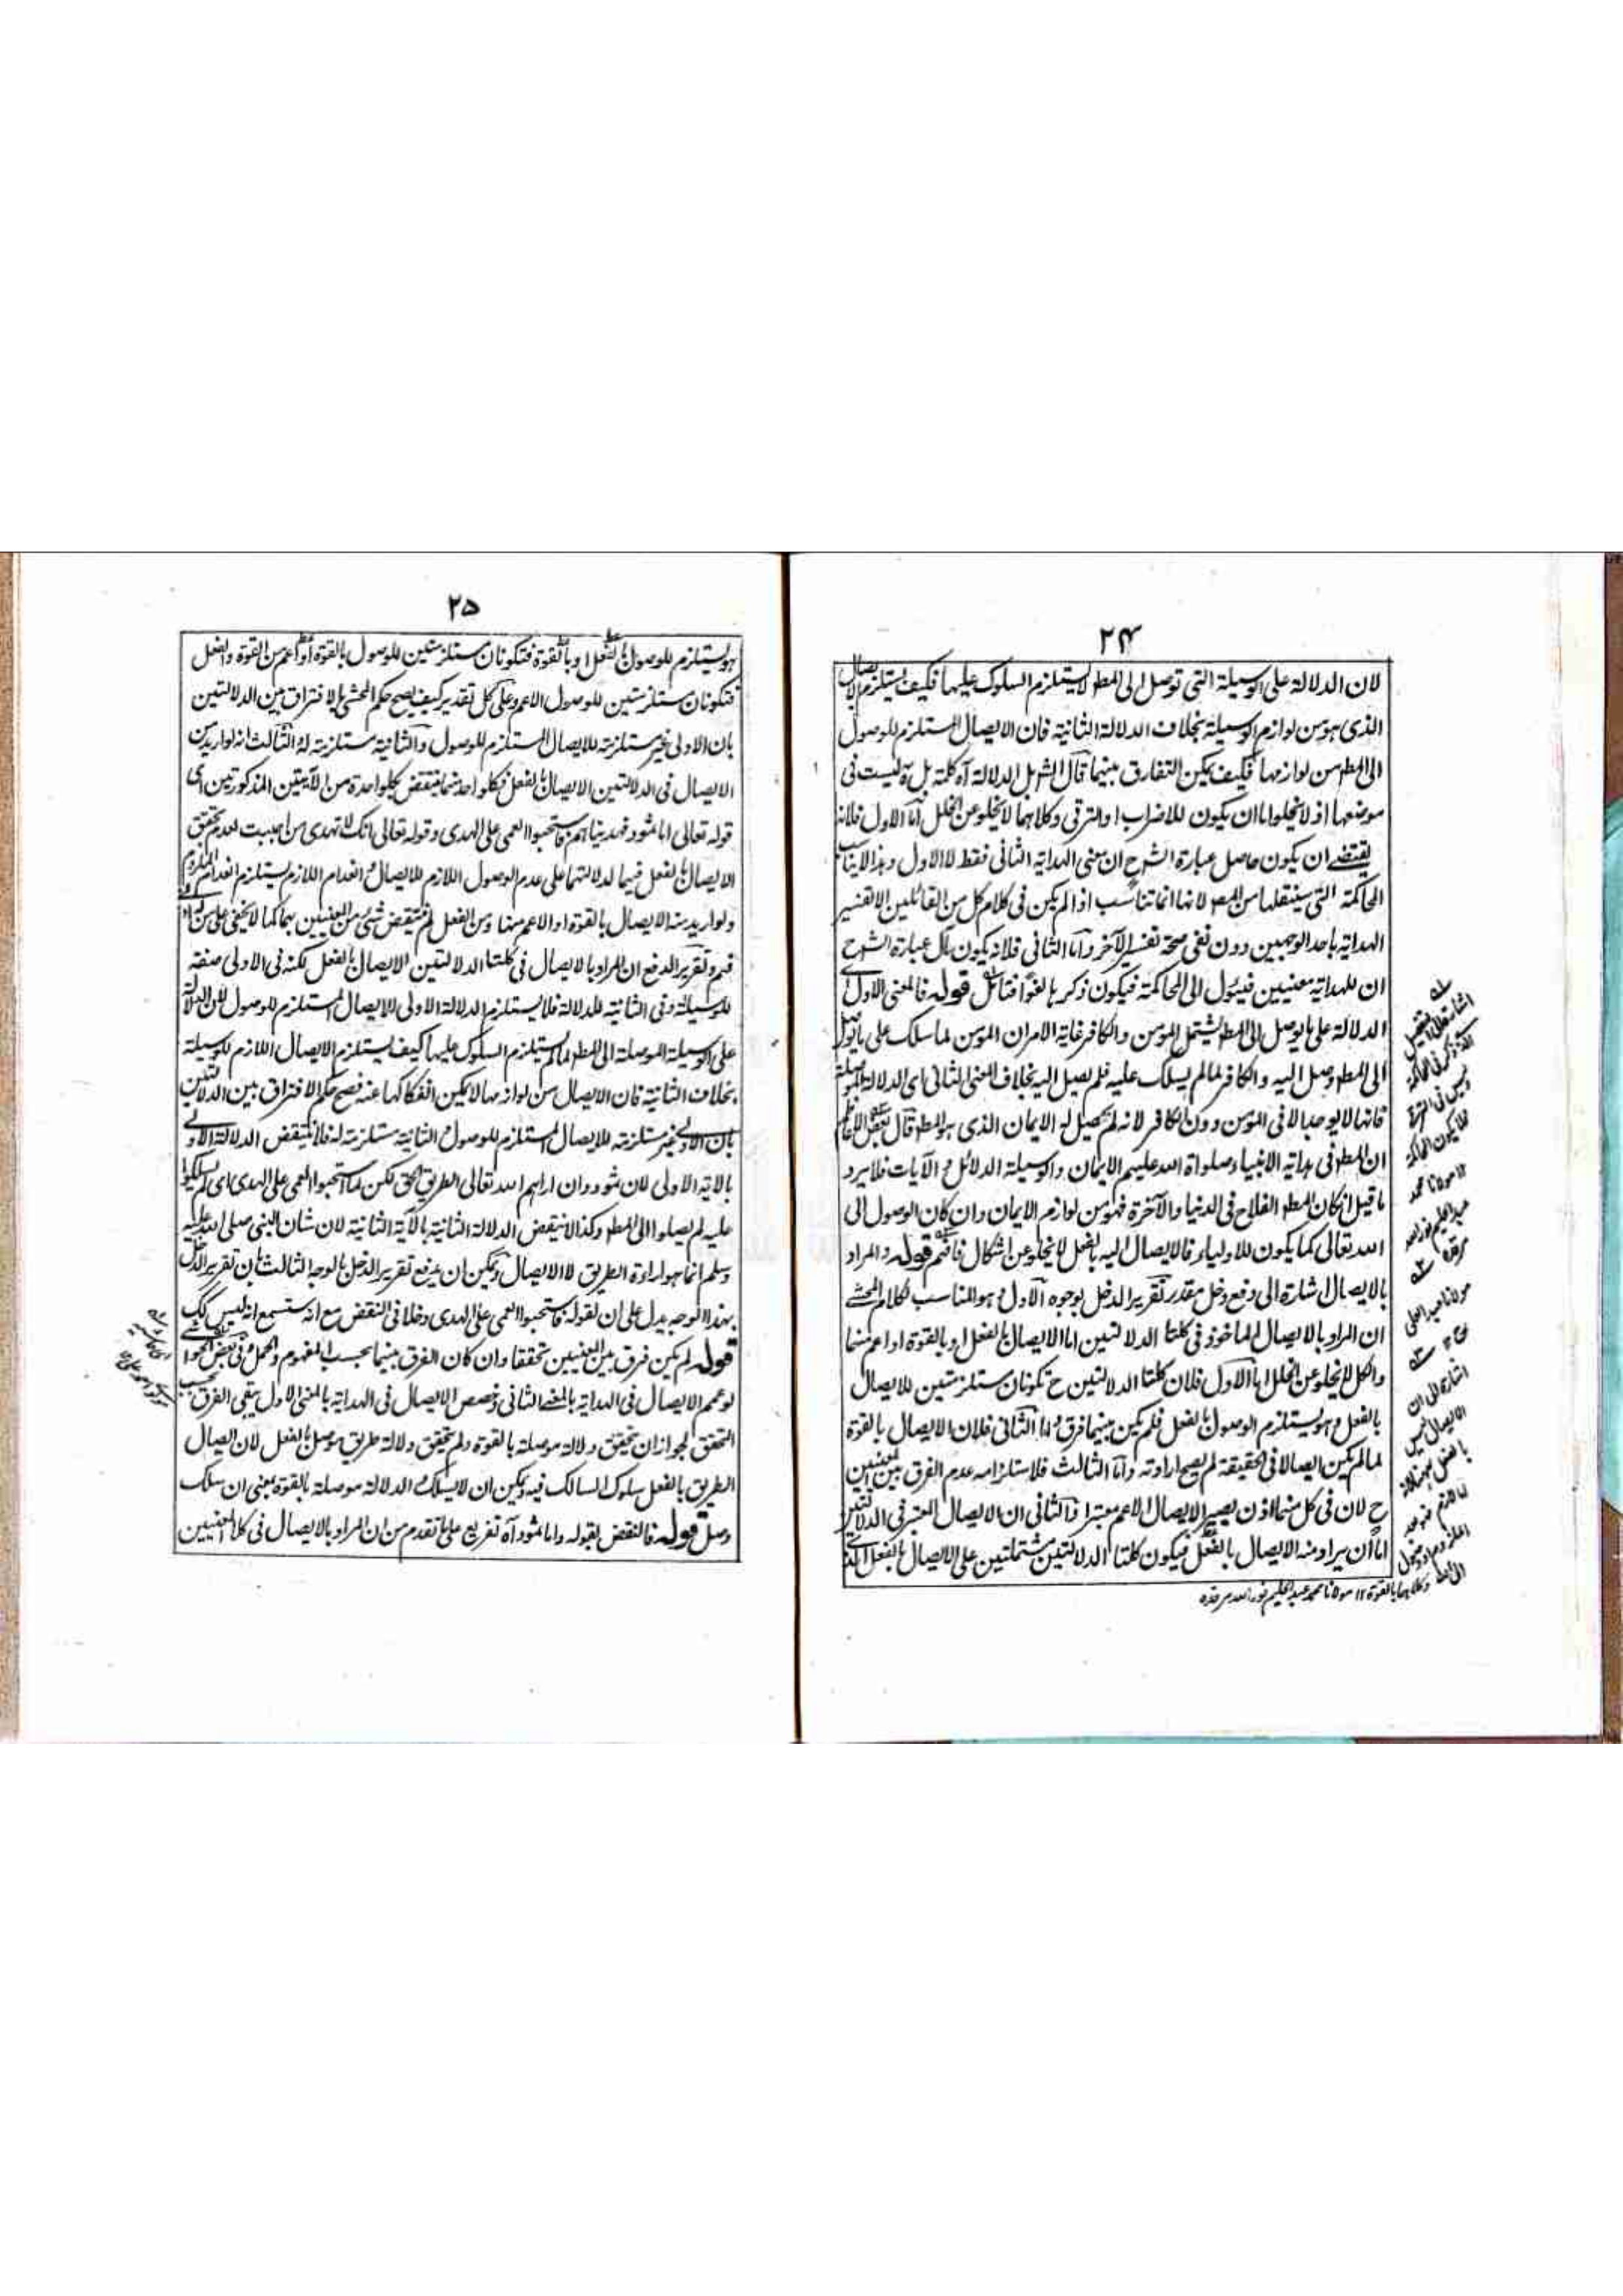 ۲۴
لان الدلالة على الوسيلة التى توصل الى المطلا يستلزم السلوك عليها فكيف يستلزم الايصال
الذى هو من لوازم الوسيلة بخلاف الدلالة الثانية فان الايصال المستلزم للوصول
الى المط من لوازمها فكيف يمكن التفارق بينهما قال الشر بل الدلالة آه كلمة بل ليست فى
موضعها اذ لا يخلو اما ان يكون للاضراب او الترقى وكلاهما لا يخلو عن الخلل اما الاول فلانه
يقتضے ان يكون حاصل عبارة الشرح ان معنى الهداية الثانى فقط لا الاول وهذا لا يناسب
المحاكمة التى سينقلها من المص لانها انما تناسب اذا لم يكن فى كلام كل من القائلين الا تفسير
الهداية باحد الوجهين دون نفى صحة تفسير الآخر واما الثانى فلانه يكون مآل عبارة الشرح
ان للهداية معنيين فيئول الى المحاكمة فيكون ذكرها لغوا فتامل قوله فالمعنى الاول اے
الدلالة على ما يوصل الى المط يشتمل المؤمن والكافر غاية الامر ان المومن لما سلك على ما يوصل
الى المط وصل اليه والكافر لما لم يسلك عليه فلم يصل اليه بخلاف المعنى الثانى اى الدلالة الموصلة
فانها لا يوجد الا فى المؤمن دون الكافر لانه لم يحصل له الايمان الذى هو المط قال بعض الاعاظم
ان المط فى هداية الانبياء صلواة الله عليهم الايمان والوسيلة الدلائل والآيات فلا يرد
ما قيل ان كان المط الفلاح فى الدنيا والآخرة فهو من لوازم الايمان وان كان الوصول الى
الله تعالى كما يكون للاولياء فالايصال اليه بالفعل لا يخلو عن اشكال فافهم قوله والمراد
بالايصال اشارة الى دفع دخل مقدر تقرير الدخل بوجوه الاول وهو المناسب لكلام المحشے
ان المراد بالايصال الماخوذ فى كلتا الدلالتين اما الايصال بالفعل او بالقوة او اعم منهما
والكل لا يخلو عن الخلل اما الاول فلان كلتا الدلالتين ح تكونان مستلزمتين للايصال
بالفعل وهو يستلزم الوصول بالفعل فلم يكن بينهما فرق واما الثانى فلان الايصال بالقوة
لما لم يكن ايصالا فى الحقيقة لم يصح ارادته واما الثالث فلاستلزامه عدم الفرق بين المعنيين
ح لان فى كل منهما اذن يصير الايصال الاعم معتبرا والثانى ان الايصال المعتبر فى الدلالتين
اما ان يراد منه الايصال بالفعل فيكون كلتا الدلالتين مشتملتين على الايصال بالفعل الذى
اشارة الى ان التفصيل
المذكور فى المحاكمة
ليس فى الشرح
فلا يكون المحاكمة
١٢ مولانا محمد
عبد الحليم نور الله
مرقده
مولانا عبد العلى
اشارة الى ان
الايصال ليس
بالفعل
الى المط وكلاهما بالقوة ١٢ مولانا محمد عبد الحليم نور الله مرقده
۲۵
هو يستلزم للوصول بالفعل او بالقوة فتكونان مستلزمتين للوصول بالقوة او اعم من القوة والفعل
فتكونان مستلزمتين للوصول الاعم وعلى كل تقدير كيف يصح حكم المحشى بالافتراق بين الدلالتين
بان الاولى غير مستلزمة للايصال المستلزم للوصول والثانية مستلزمة له الثالث انه لو اريد من
الايصال فى الدلالتين الايصال بالفعل فكلواحد منهما ينتقض بكلواحدة من الآيتين المذكورتين اى
قوله تعالى اما ثمود فهديناهم فاستحبوا العمى على الهدى وقوله تعالى انك لا تهدى من احببت لعدم تحقق
الايصال بالفعل فيهما لدلالتهما على عدم الوصول اللازم للايصال وانعدام اللازم يستلزم انعدام الملزوم
ولو اريد منه الايصال بالقوة او الاعم منها ومن الفعل لم ينتقض شئ من المعنيين بهما كما لا يخفى على من له
فهم وتقرير الدفع ان المراد بالايصال فى كلتا الدلالتين الايصال بالفعل لكنه فى الاولى صفة
للوسيلة وفى الثانية للدلالة فلا يستلزم الدلالة الاولى الايصال المستلزم للوصول لان الدلالة
على الوسيلة الموصلة الى المط لما لم يستلزم السلوك عليها كيف يستلزم الايصال اللازم للوسيلة
بخلاف الثانية فان الايصال من لوازمها لا يمكن انفكاكها عنه فصح حكم الافتراق بين الدلالتين
بان الاولى غير مستلزمة للايصال المستلزم للوصول والثانية مستلزمة له فلا ينتقض الدلالة الاولى
بالاية الاولى لان ثمود وان اراهم الله تعالى الطريق الحق لكن لما استحبوا العمى على الهدى اى لم يسلكوا
عليه لم يصلوا الى المط وكذا لا ينتقض الدلالة الثانية بالآية الثانية لان شان النبى صلى الله عليه
وسلم انما هو اراءة الطريق لا الايصال ويمكن ان يدفع تقرير الدخل بالوجه الثالث بان تقرير الدخل
بهذا الوجه يدل على ان لقوله فاستحبوا العمى على الهدى دخلا فى النقض مع انه ستسمع انه ليس كك
قوله لم يكن فرق بين المعنيين تحققا وان كان الفرق بينهما بحسب المفهوم والحمل وفى بعض الحواشے
لو عمم الايصال فى الهداية بالمعنى الثانى وخصص الايصال فى الهداية بالمعنى الاول يبقى الفرق بحسب
التحقق لجواز ان يتحقق دلالة موصلة بالقوة ولم يتحقق دلالة طريق موصل بالفعل لان ايصال
الطريق بالفعل سلوك السالك فيه ويمكن ان لا يسلك والدلالة موصلة بالقوة بمعنى ان سلك
وصل قوله فالنقض بقوله واما ثمود آه تفريع على ما تقدم من ان المراد بالايصال فى كلا المعنيين